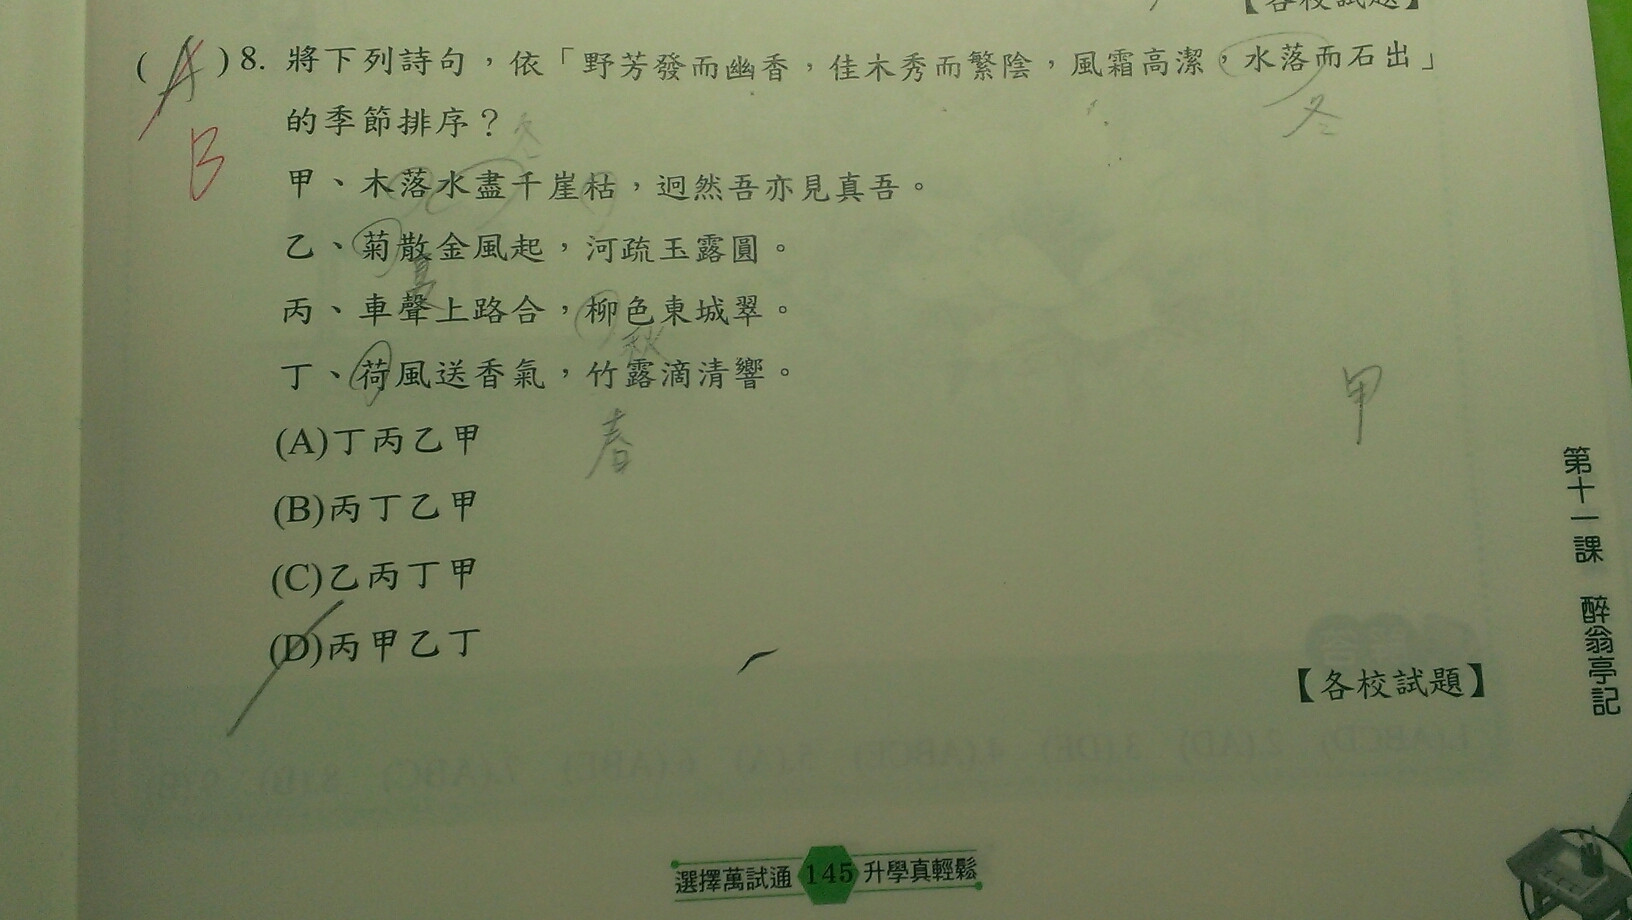 【各校試題】
(A)8. 將下列詩句，依「野芳發而幽香，佳木秀而繁陰，風霜高潔，水落而石出」
冬
的季節排序？
冬
B
甲、木落水盡千崖枯，迥然吾亦見真吾。
乙、菊散金風起，河疏玉露圓。
夏
丙、車聲上路合，柳色東城翠。
秋
丁、荷風送香氣，竹露滴清響。
甲
(A)丁丙乙甲
春
(B)丙丁乙甲
(C)乙丙丁甲
(D)丙甲乙丁
【各校試題】
第十一課 醉翁亭記
選擇萬試通 145 升學真輕鬆